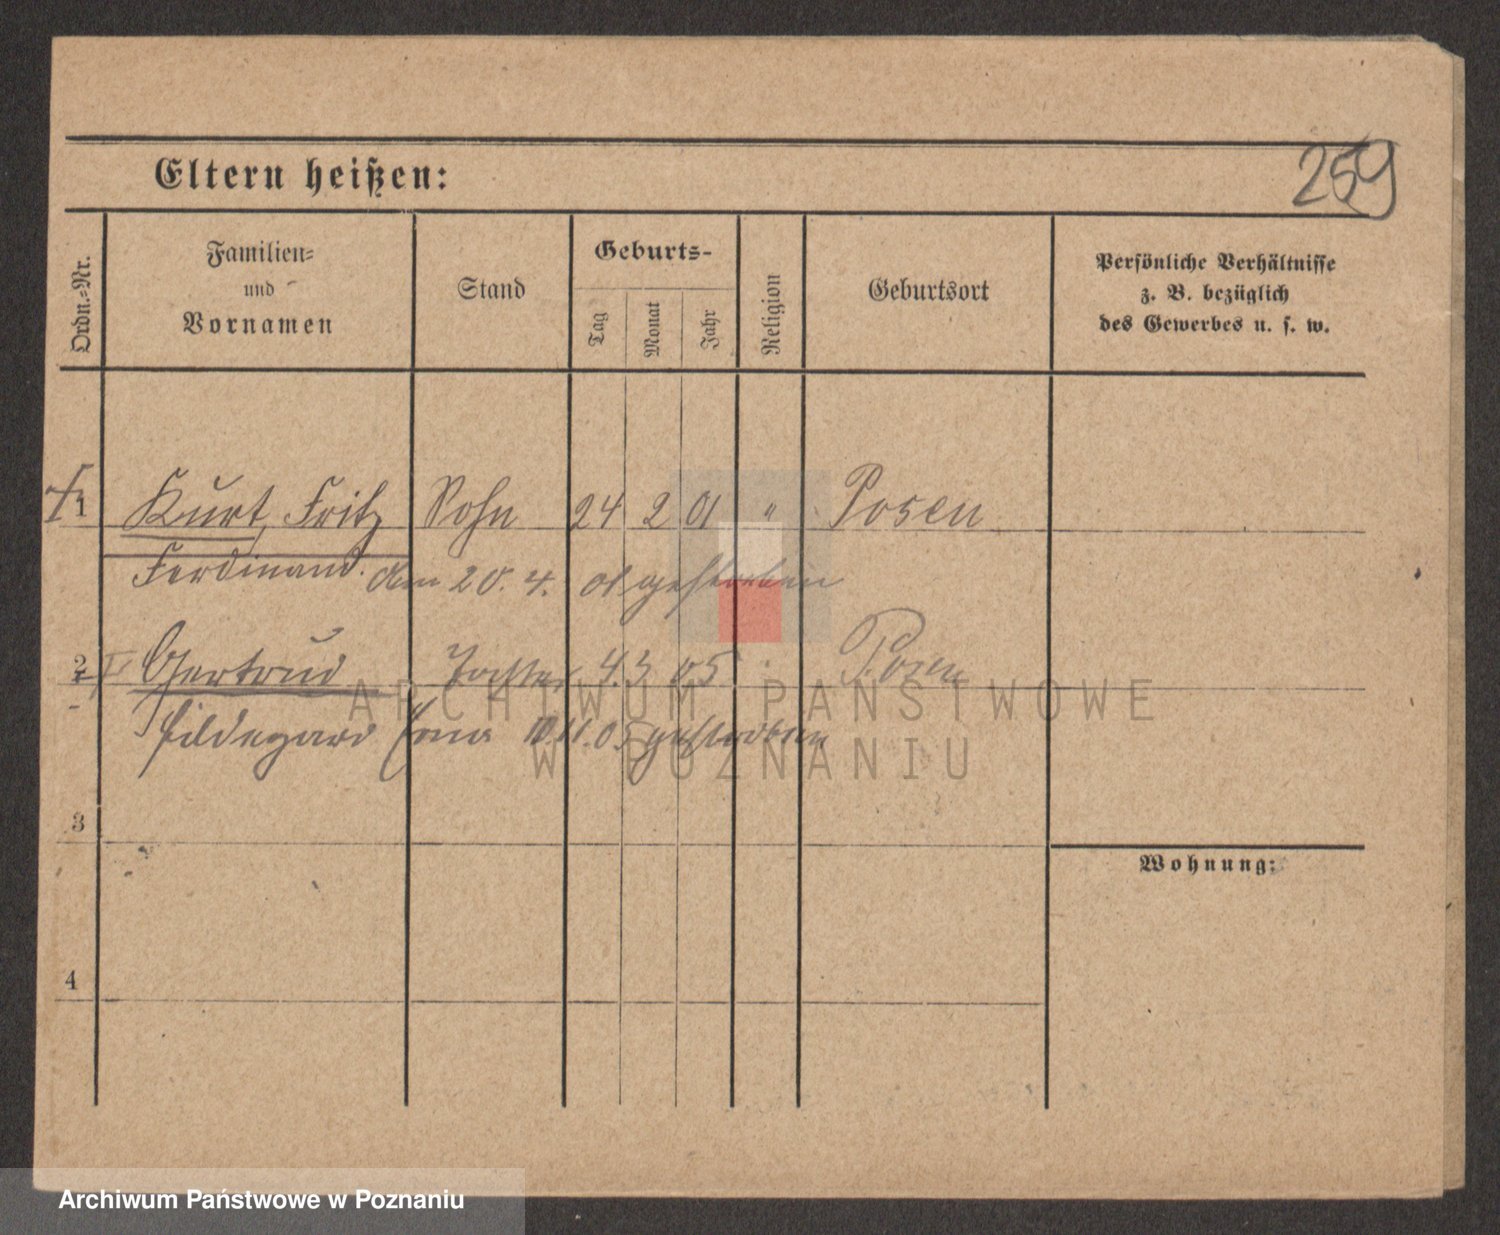 259
Eltern heißen:
Ordn.-Nr.
Familien- und Vornamen
Stand
Geburts-
Tag
Monat
Jahr
Religion
Geburtsort
Persönliche Verhältnisse
z. B. bezüglich
des Gewerbes u. s. w.
1 Kurt, Fritz Sohn 24 2 01 " Posen
Ferdinand. den 20. 4. 01 gestorben
2 Gertrud Tochter 4. 3 05 Posen
Hildegard Erna 10.11.05 gestorben
3
Wohnung:
4
ARCHIWUM PAŃSTWOWE
W POZNANIU
Archiwum Państwowe w Poznaniu